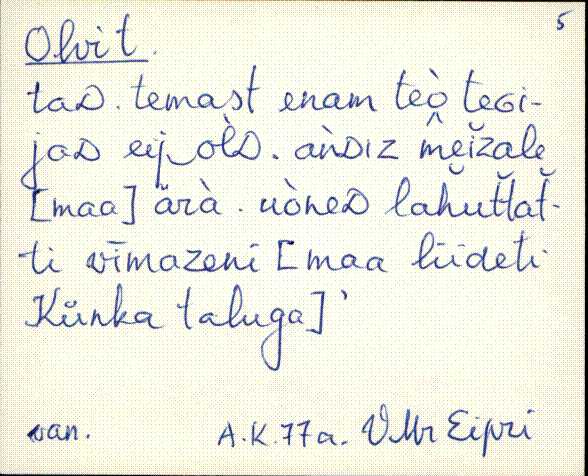 5
Olvit.
taᴅ. temast enam teò̭ teɢi-
jaᴅ eij olᴅ̀. àǹᴅɪz m̭eĭzale
[maa] ärà. uòneᴅ lahŭt̆t̆at̆-
ti vīmazeni [maa liideti
Küŭnka taluga]'
van. A.K. 77a. VMr Eipri